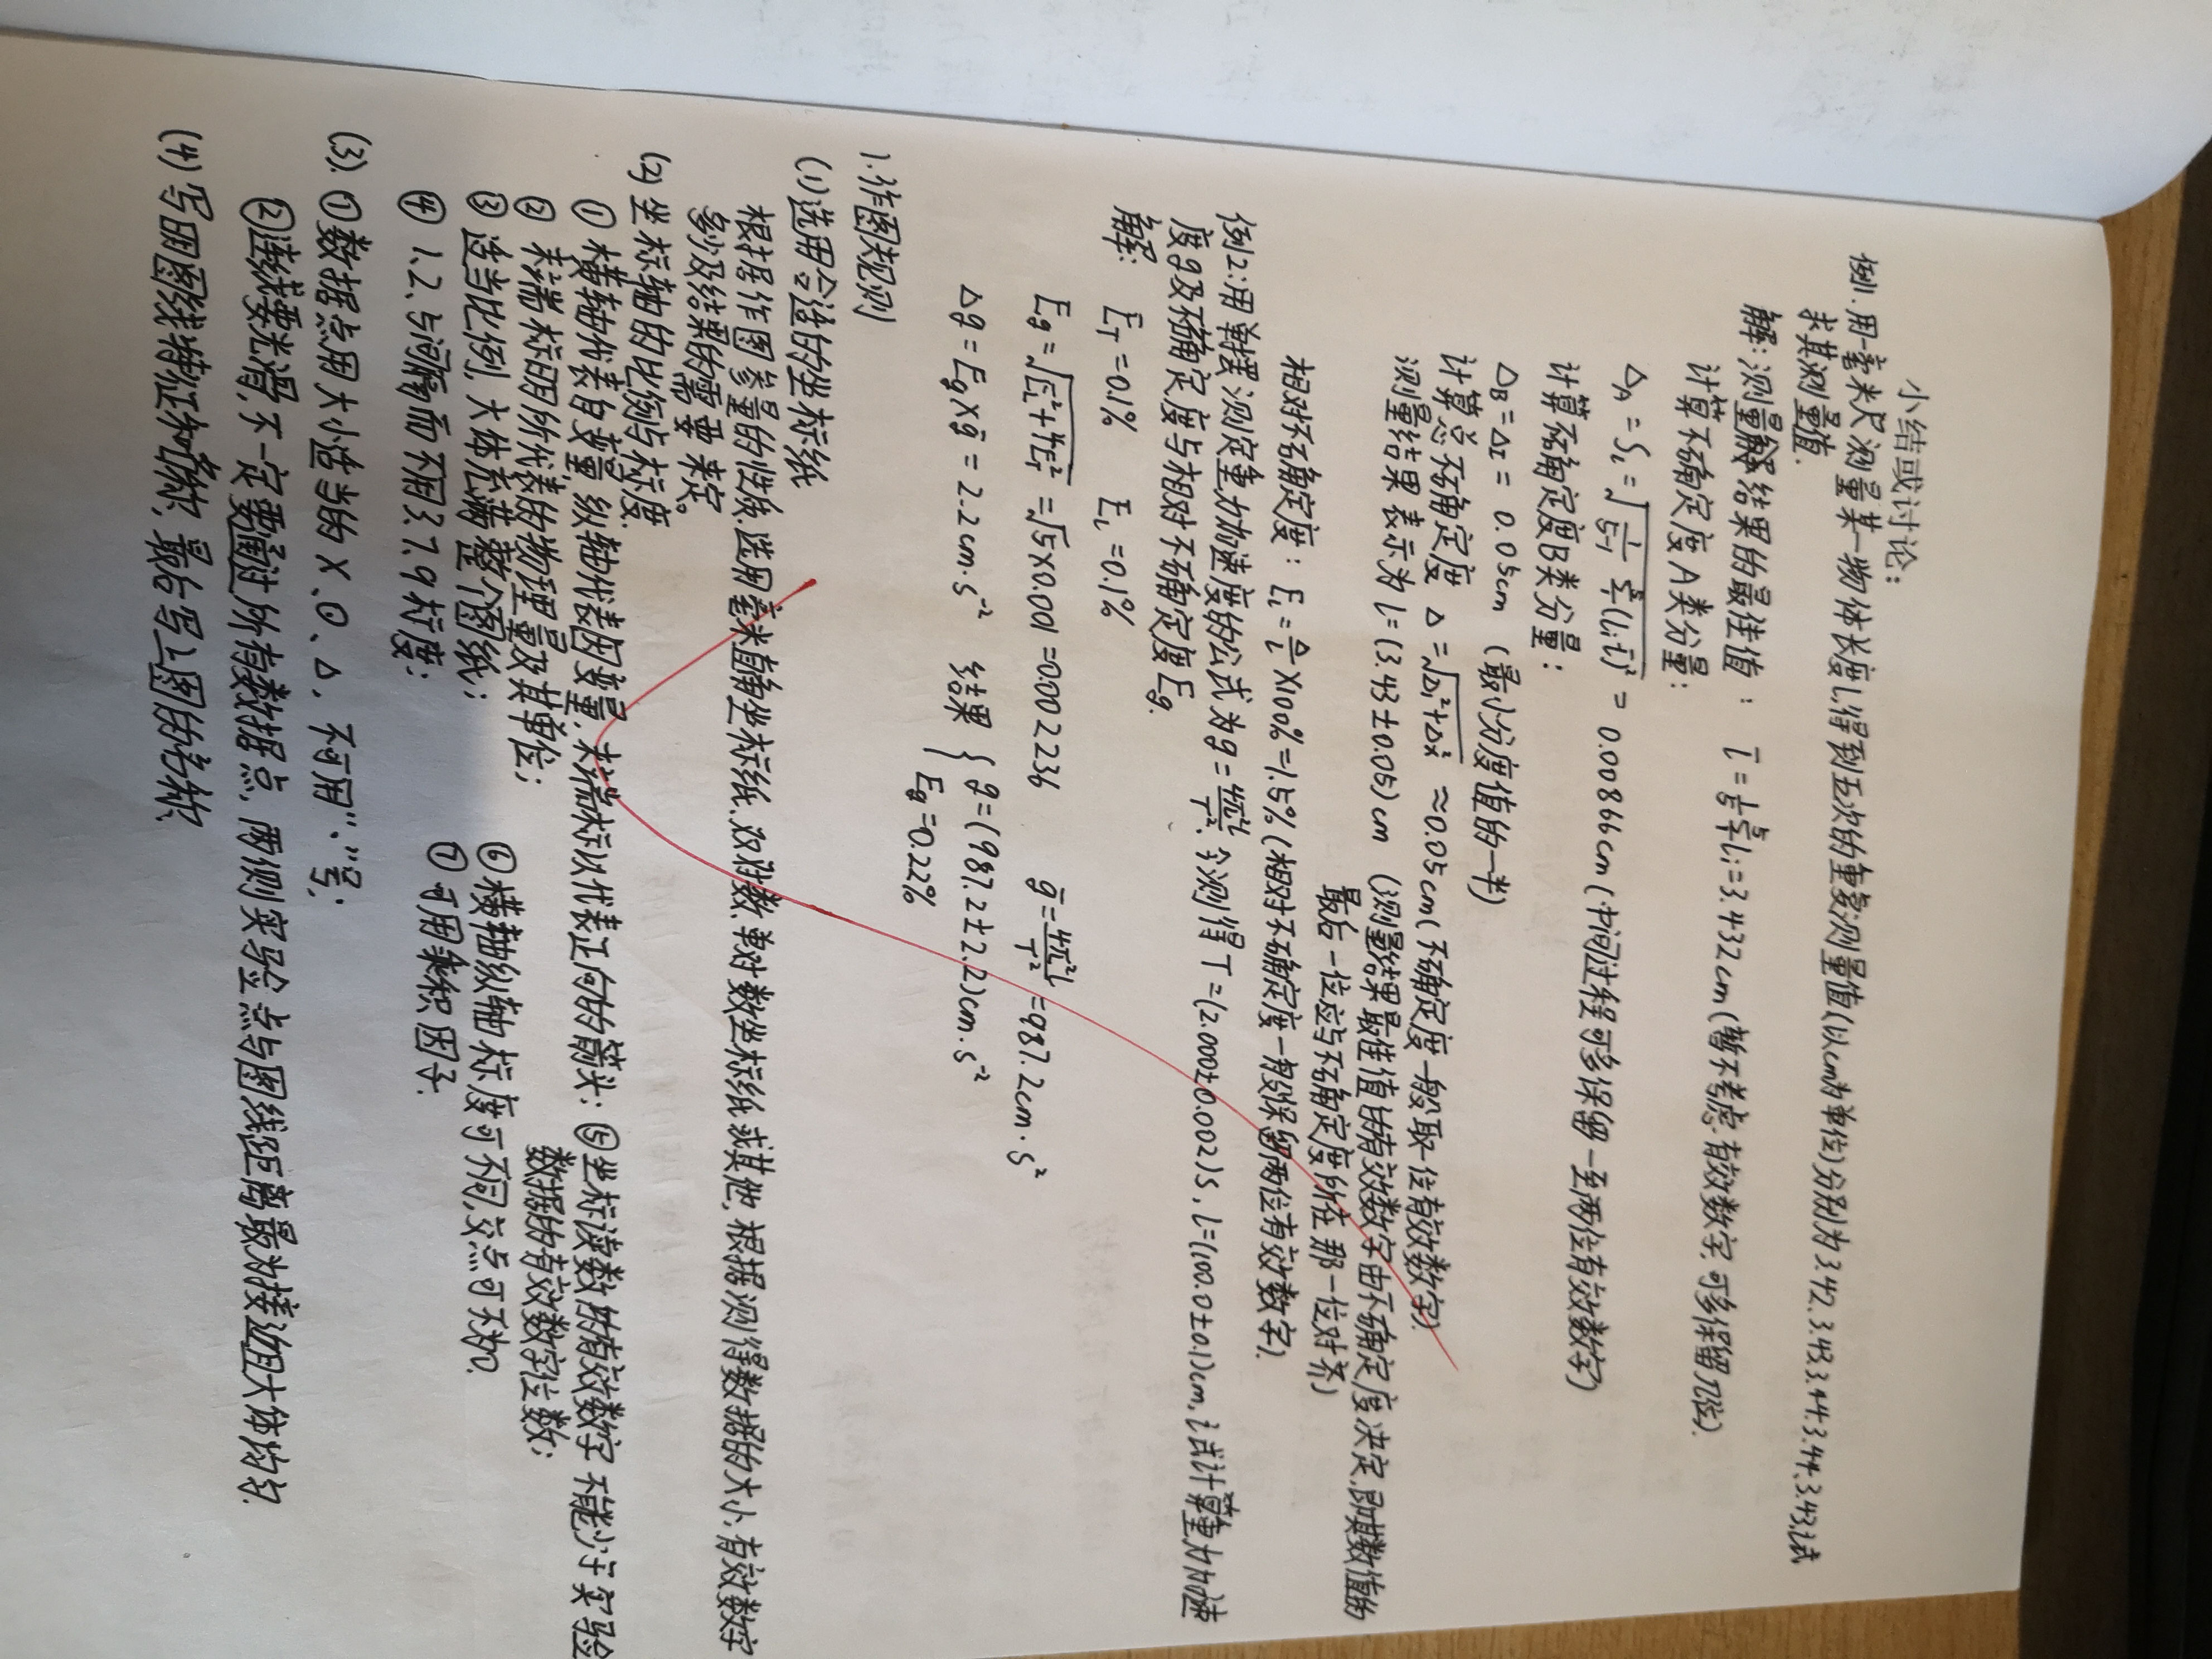 小结或讨论：
例1. 用一毫米尺测量某一物体长度L,得到五次的重复测量值(以cm为单位)分别为3.42.3.43.3.44.3.44.3.43,试
求其测量值.
解：测量结果的最佳值： l̄ = 1/5 Σ⁵ lᵢ = 3.432cm (暂不考虑有效数字,可多保留几位).
计算不确定度A类分量：
△A = Sₗ = √(1/(5-1) Σ⁵(lᵢ-l̄)²) = 0.00866cm (中间过程可多保留一至两位有效数字)
计算不确定度B类分量：
△B = △I = 0.05cm (最小分度值的一半)
计算总不确定度 △ = √(△A²+△B²) ≈ 0.05cm (不确定度一般取一位有效数字).
测量结果表示为 l = (3.43±0.05)cm (测量结果最佳值的有效数字由不确定度决定,即其数值的
最后一位应与不确定度所在那一位对齐)
相对不确定度： Eₗ = △/l × 100% = 1.5% (相对不确定度一般保留两位有效数字).
例2:用单摆测定重力加速度的公式为 g = 4π²l/T²,今测得 T=(2.000±0.002)s, l=(100.0±0.1)cm,试计算重力加速
度g及不确定度与相对不确定度Eg.
解： E_T = 0.1% E_L = 0.1%
Eg = √(E_L²+4E_T²) = √5×0.001 = 0.002236 ḡ = 4π²l/T² = 987.2cm·s²
△g = Eg×ḡ = 2.2cm·s⁻² 结果 { g = (987.2±2.2)cm·s⁻²
Eg = 0.22%
1.作图规则
(1)选用合适的坐标纸
根据作图参量的性质,选用毫米直角坐标纸.双对数.单对数坐标纸或其他,根据测得数据的大小,有效数字
多少及结果的需要来定。
(2)坐标轴的比例与标度.
① 横轴代表自变量,纵轴代表因变量.末端标以代表正向的箭头; ⑤坐标读数的有效数字不能少于实验
② 末端标明所代表的物理量及其单位; 数据的有效数字位数;
③ 适当比例,大体充满整个图纸; ⑥横轴纵轴标度可不同,交点可不为0.
④ 1.2.5间隔而不用3.7.9标度; ⑦可用乘积因子.
(3).①数据点用大小适当的×、⊙、△,不可用“.”号;
②连线要光滑,不一定要通过所有数据点,两侧实验点与图线距离最为接近且大体均匀.
(4)写明图线特征和名称,最后写上图的名称.